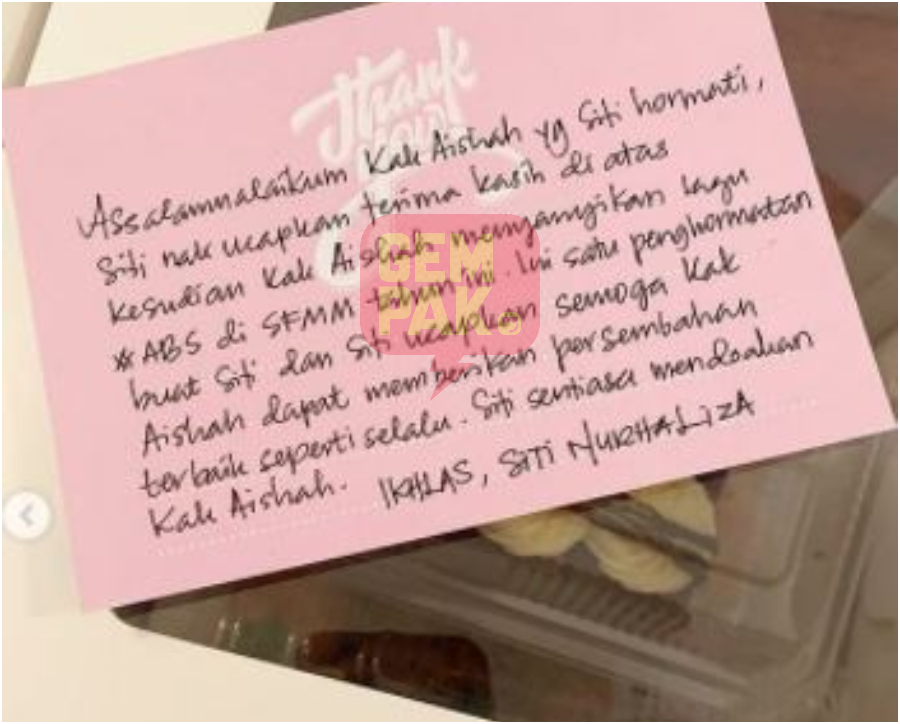 Thank
you!
Assalammalaikum Kak Aishah yg Siti hormati,
Siti nak ucapkan terima kasih di atas
kesudian Kak Aishah menyanyikan lagu
*ABS di SFMM tahun ini. Ini satu penghormatan
buat Siti dan Siti ucapkan semoga Kak
Aishah dapat memberikan persembahan
terbaik seperti selalu. Siti sentiasa mendoakan
Kak Aishah. IKHLAS, SITI NURHALIZA
GEM
PAK